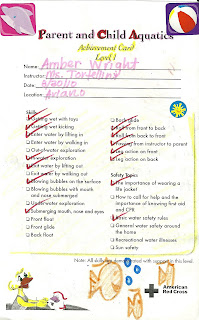 Parent and Child Aquatics
Achievement Card
Level 1
Name: Amber Wright
Instructor: Ms. Tortellini
Date: 8/20/10
Location: Aviano
Skills
Getting wet with toys
Getting wet kicking
Enter water by lifting in
Enter water by walking in
Out-of-water exploration
In-water exploration
Exit water by lifting out
Exit water by walking out
Blowing bubbles on the surface
Blowing bubbles with mouth
and nose submerged
Underwater exploration
Submerging mouth, nose and eyes
Front float
Front glide
Back float
Back glide
Roll from front to back
Roll from back to front
Passing from instructor to parent
Leg action on front
Leg action on back
Safety Topics
The importance of wearing a
life jacket
How to call for help and the
importance of knowing first aid
and CPR
Basic water safety rules
General water safety around
the home
Recreational water illnesses
Sun safety
Note: All skills are demonstrated with support in this level.
American
Red Cross